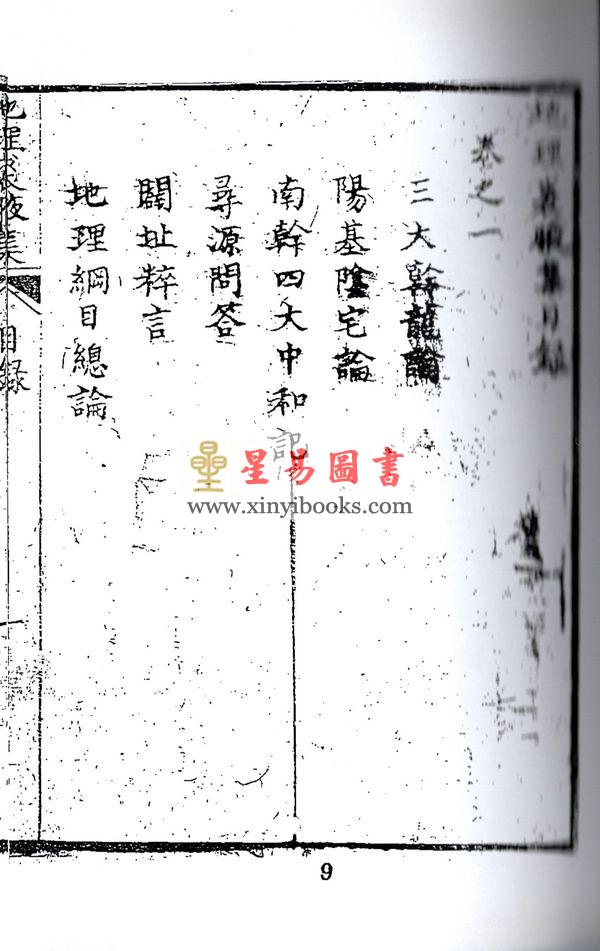 地理集目錄
卷之一
三大幹龍論
陽基陰宅論
南幹四大中和記
尋源問答
闢址粹言
地理綱目總論
地理集 目錄 一
星易圖書
www.xinyibooks.com
9